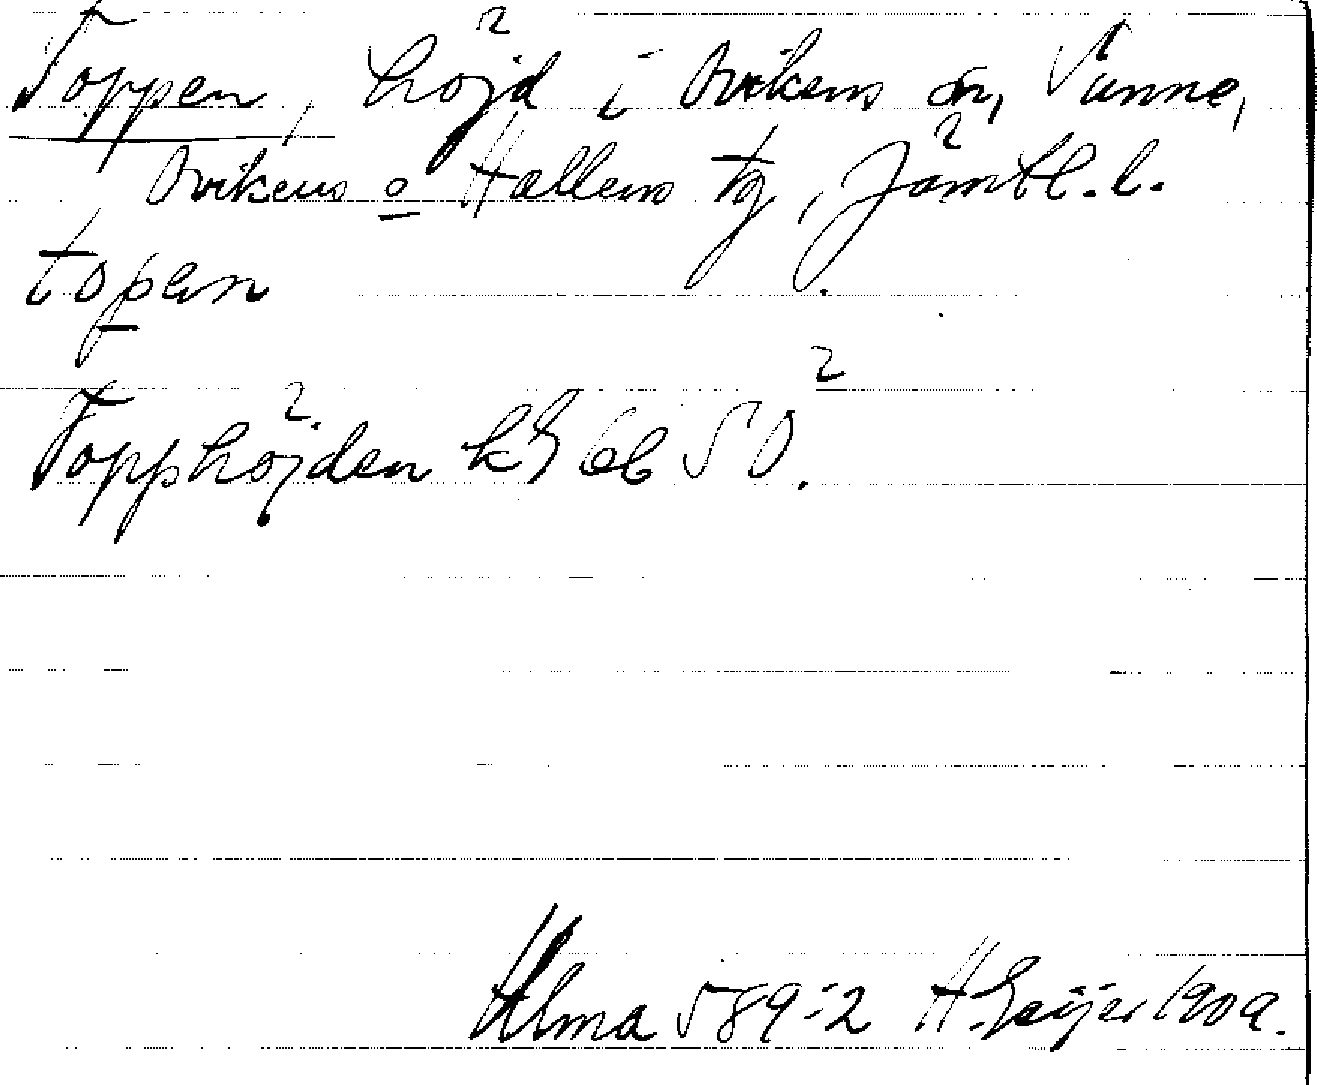 Toppen, höjd i Ovikens sn, Sunne,
Ovikens o Hallens tg, Jämtl. l.
topen
Topphöjden kš bl SO.
Ulma 589:2 H. Geijer 1909.